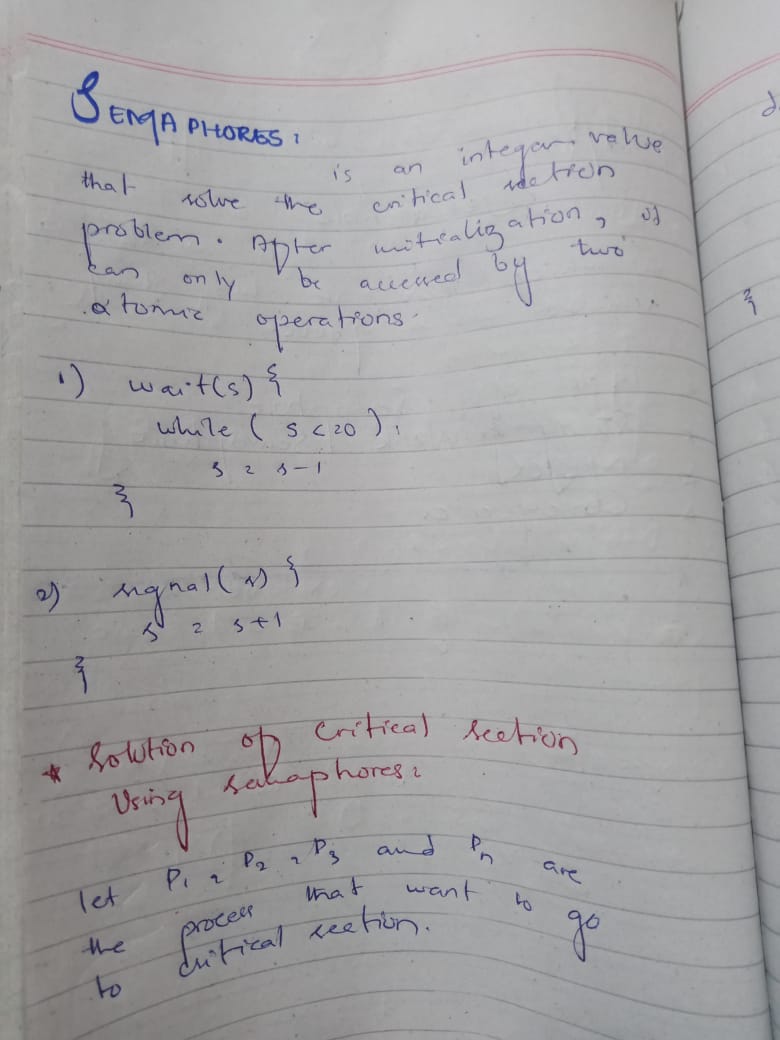 SEMAPHORES:
is an integer value
that solve the critical section
problem. After initialization, it
can only be accessed by two
atomic operations.
1) wait(s) {
while ( s <= 0 );
s = s-1
}
2) signal(s) {
s = s+1
}
* Solution of critical section
Using semaphores:
let P1, P2, P3 and Pn are
the process that want to go
to critical section.